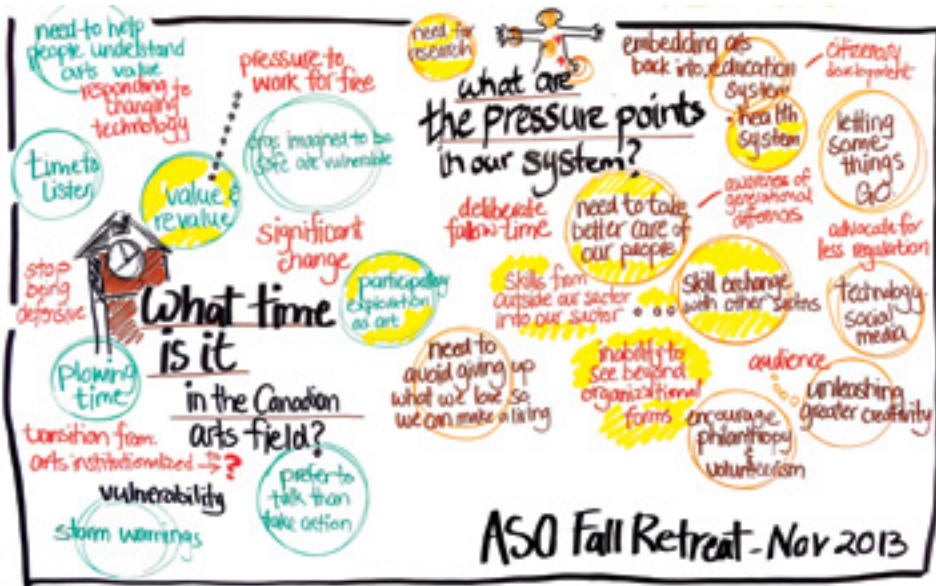 need to help
people understand
arts value
responding to
changing
technology
pressure to
work for free
time to
listen
value &
revalue
orgs imagined to be
safe are vulnerable
significant
change
stop
being
defensive
participatory
exploration
as art
What time
is it
in the Canadian
arts field?
plowing
time
transition from:
arts institutionalized to → ?
vulnerability
storm warnings
prefer to
talk than
take action
need for
research
what are
the pressure points
in our system?
embedding arts
back into education
system
health
system
citizenry
development
letting
some
things
GO
deliberate
fallow-time
need to take
better care of
our people
awareness of
generational
differences
advocate for
less regulation
skills from
outside our sector
into our sector
skill exchange
with other sectors
technology
social
media
need to
avoid giving up
what we love so
we can make a living
inability to
see beyond
organizational
forms
audience
unleashing
greater creativity
encourage
philanthropy
&
volunteerism
ASO Fall Retreat - Nov 2013